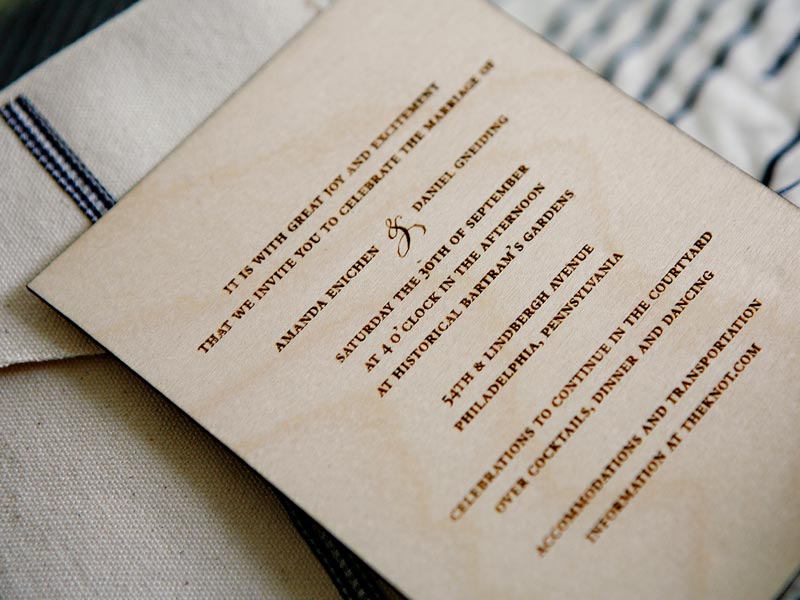 IT IS WITH GREAT JOY AND EXCITEMENT
THAT WE INVITE YOU TO CELEBRATE THE MARRIAGE OF
AMANDA ENICHEN & DANIEL GNEIDING
SATURDAY THE 30TH OF SEPTEMBER
AT 4 O'CLOCK IN THE AFTERNOON
AT HISTORICAL BARTRAM'S GARDENS
54TH & LINDBERGH AVENUE
PHILADELPHIA, PENNSYLVANIA
CELEBRATIONS TO CONTINUE IN THE COURTYARD
OVER COCKTAILS, DINNER AND DANCING
ACCOMMODATIONS AND TRANSPORTATION
INFORMATION AT THEKNOT.COM